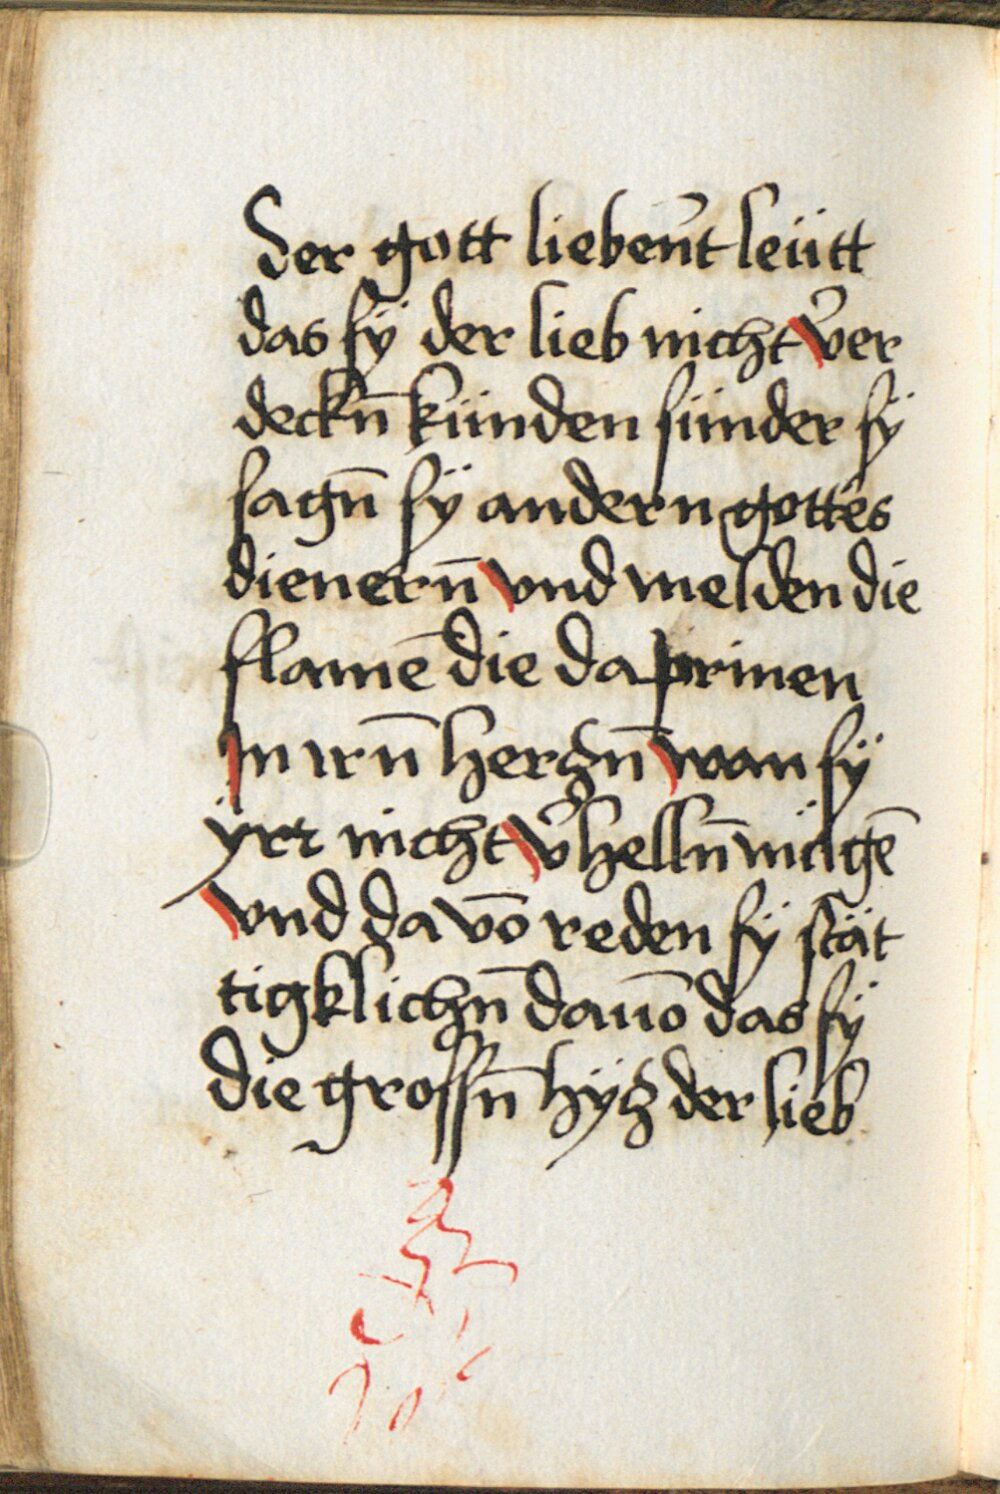 Der gott lieben̄t leütt
das sÿ der lieb nicht v̉er
deckn̄ künden sünder sÿ
sagn̄ sÿ andern gottes
dienern̄ vnd melden die
flamē die da prinen
In irn̄ herczn̄ wan sÿ
ÿrr nicht v̉helln̄ mügē
vnd da vō reden sÿ stät
tigklichn̄ dauō das sÿ
die grossn̄ hÿcz der lieb